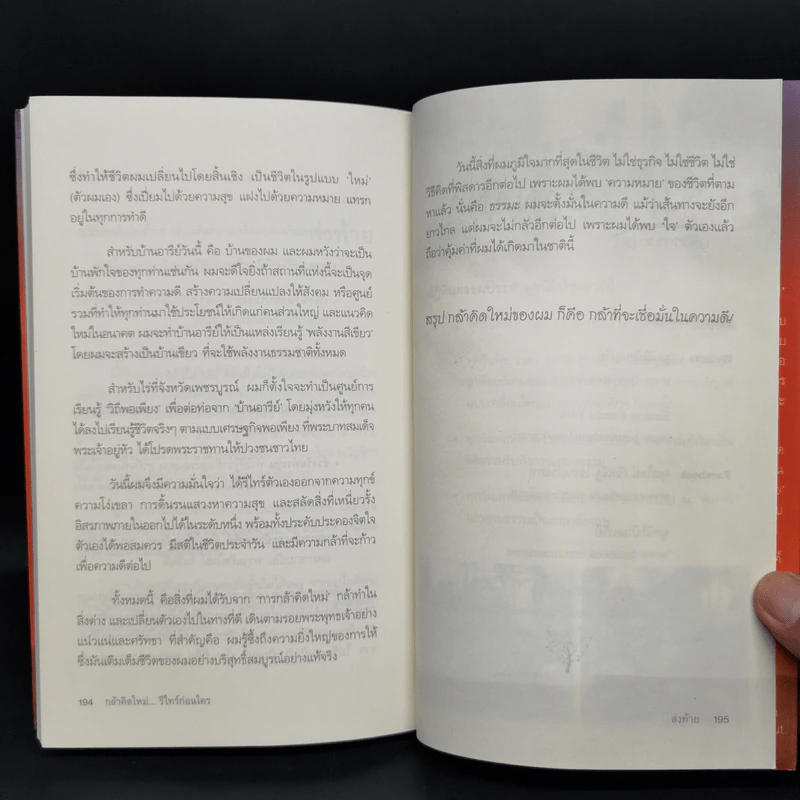 ซึ่งทำให้ชีวิตผมเปลี่ยนไปโดยสิ้นเชิง เป็นชีวิตในรูปแบบ 'ใหม่'
(ตัวผมเอง) ซึ่งเปี่ยมไปด้วยความสุข แฝงไปด้วยความหมาย แทรก
อยู่ในทุกการทำดี
สำหรับบ้านอารีย์วันนี้ คือ บ้านของผม และผมหวังว่าจะเป็น
บ้านพักใจของทุกท่านเช่นกัน ผมจะดีใจยิ่งถ้าสถานที่แห่งนี้จะเป็นจุด
เริ่มต้นของการทำความดี สร้างความเปลี่ยนแปลงให้สังคม หรือศูนย์
รวมที่ทำให้ทุกท่านมาใช้ประโยชน์ให้เกิดแก่คนส่วนใหญ่ และแนวคิด
ใหม่ในอนาคต ผมจะทำบ้านอารีย์ให้เป็นแหล่งเรียนรู้ 'พลังงานสีเขียว'
โดยผมจะสร้างเป็นบ้านเขียว ที่จะใช้พลังงานธรรมชาติทั้งหมด
สำหรับไร่ที่จังหวัดเพชรบูรณ์ ผมก็ตั้งใจจะทำเป็นศูนย์การ
เรียนรู้ 'วิถีพอเพียง' เพื่อต่อท่อจาก 'บ้านอารีย์' โดยมุ่งหวังให้ทุกคน
ได้ลงไปเรียนรู้ชีวิตจริงๆ ตามแบบเศรษฐกิจพอเพียง ที่พระบาทสมเด็จ
พระเจ้าอยู่หัว ได้โปรดพระราชทานให้ปวงชนชาวไทย
วันนี้ผมจึงมีความมั่นใจว่า ได้รีไทร์ตัวเองออกจากความทุกข์
ความโง่เขลา การดิ้นรนแสวงหาความสุข และสลัดสิ่งที่เหนี่ยวรั้ง
อิสรภาพภายในออกไปได้ในระดับหนึ่ง พร้อมทั้งประคับประคองจิตใจ
ตัวเองได้พอสมควร มีสติในชีวิตประจำวัน และมีความกล้าที่จะก้าว
เพื่อความดีต่อไป
ทั้งหมดนี้ คือสิ่งที่ผมได้รับจาก 'การกล้าคิดใหม่' กล้าทำใน
สิ่งต่าง และเปลี่ยนตัวเองไปในทางที่ดี เดินตามรอยพระพุทธเจ้าอย่าง
แน่วแน่และศรัทธา ที่สำคัญคือ ผมรู้ซึ้งถึงความยิ่งใหญ่ของการให้
ซึ่งมันเติมเต็มชีวิตของผมอย่างบริสุทธิ์สมบูรณ์อย่างแท้จริง
194 กล้าคิดใหม่... รีไทร์ก่อนใคร
วันนี้สิ่งที่ผมภูมิใจมากที่สุดในชีวิต ไม่ใช่ธุรกิจ ไม่ใช่ชีวิต ไม่ใช่
วิธีคิดที่พิสดารอีกต่อไป เพราะผมได้พบ 'ความหมาย' ของชีวิตที่ตาม
หาแล้ว นั่นคือ ธรรมะ ผมจะตั้งมั่นในความดี แม้ว่าเส้นทางจะยังอีก
ยาวไกล แต่ผมจะไม่กลัวอีกต่อไป เพราะผมได้พบ 'ใจ' ตัวเองแล้ว
ถือว่าคุ้มค่าที่ผมได้เกิดมาในชาตินี้
สรุป กล้าคิดใหม่ของผม ก็คือ กล้าที่จะเชื่อมั่นในความดี!
ส่งท้าย 195